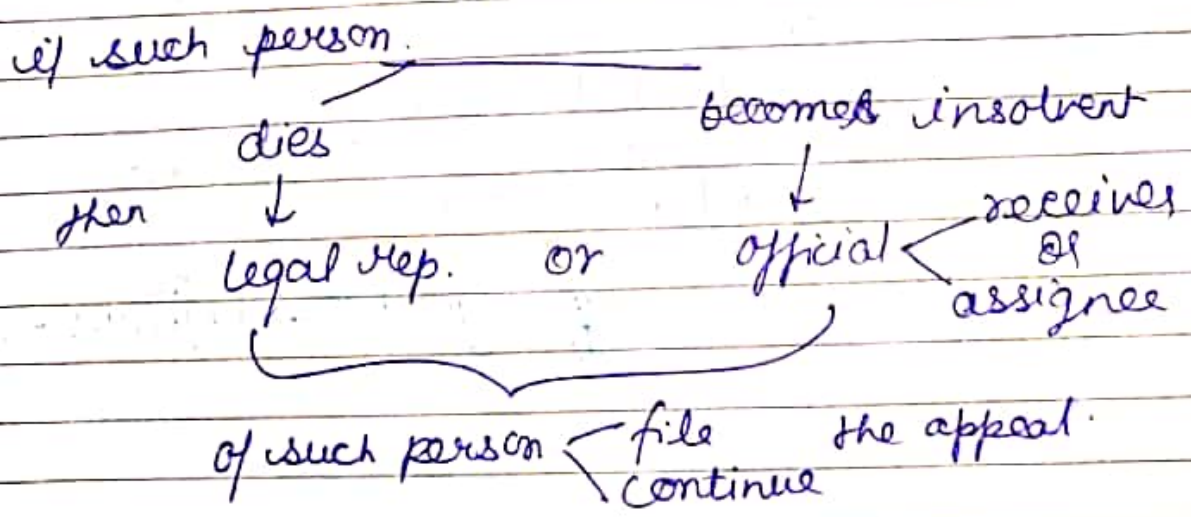 if such person.
dies becomes insolvent
then
legal rep. or official receiver
or
assignee
of such person file the appeal.
continue